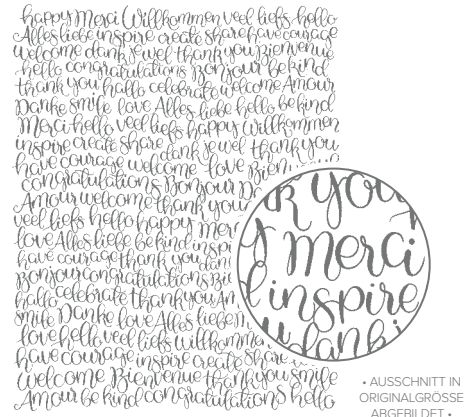 happy Merci Willkommen veel liefs hello
Alles liebe inspire create share have courage
welcome dank je wel thank you Bienvenue
hello congratulations Bonjour be kind
thank you hallo celebrate welcome Amour
Danke smile love Alles liebe hello be kind
Merci hello veel liefs happy Willkommen
inspire create share dank je wel thank you
have courage welcome love Bien
congratulations Bonjour Da
Amour welcome thank you
veel liefs hello happy Mer
love Alles liebe be kind inspi
have courage thank you dan
Bonjour congratulations Bi
hallo celebrate thank you Am
smile Danke love Alles liebe
love hello veel liefs willkomm
have courage inspire create share
welcome Bienvenue thank you smile
Amour be kind congratulations hello
k you
y merci
d inspire
u dank j
• AUSSCHNITT IN
ORIGINALGRÖSSE
ABGEBILDET •